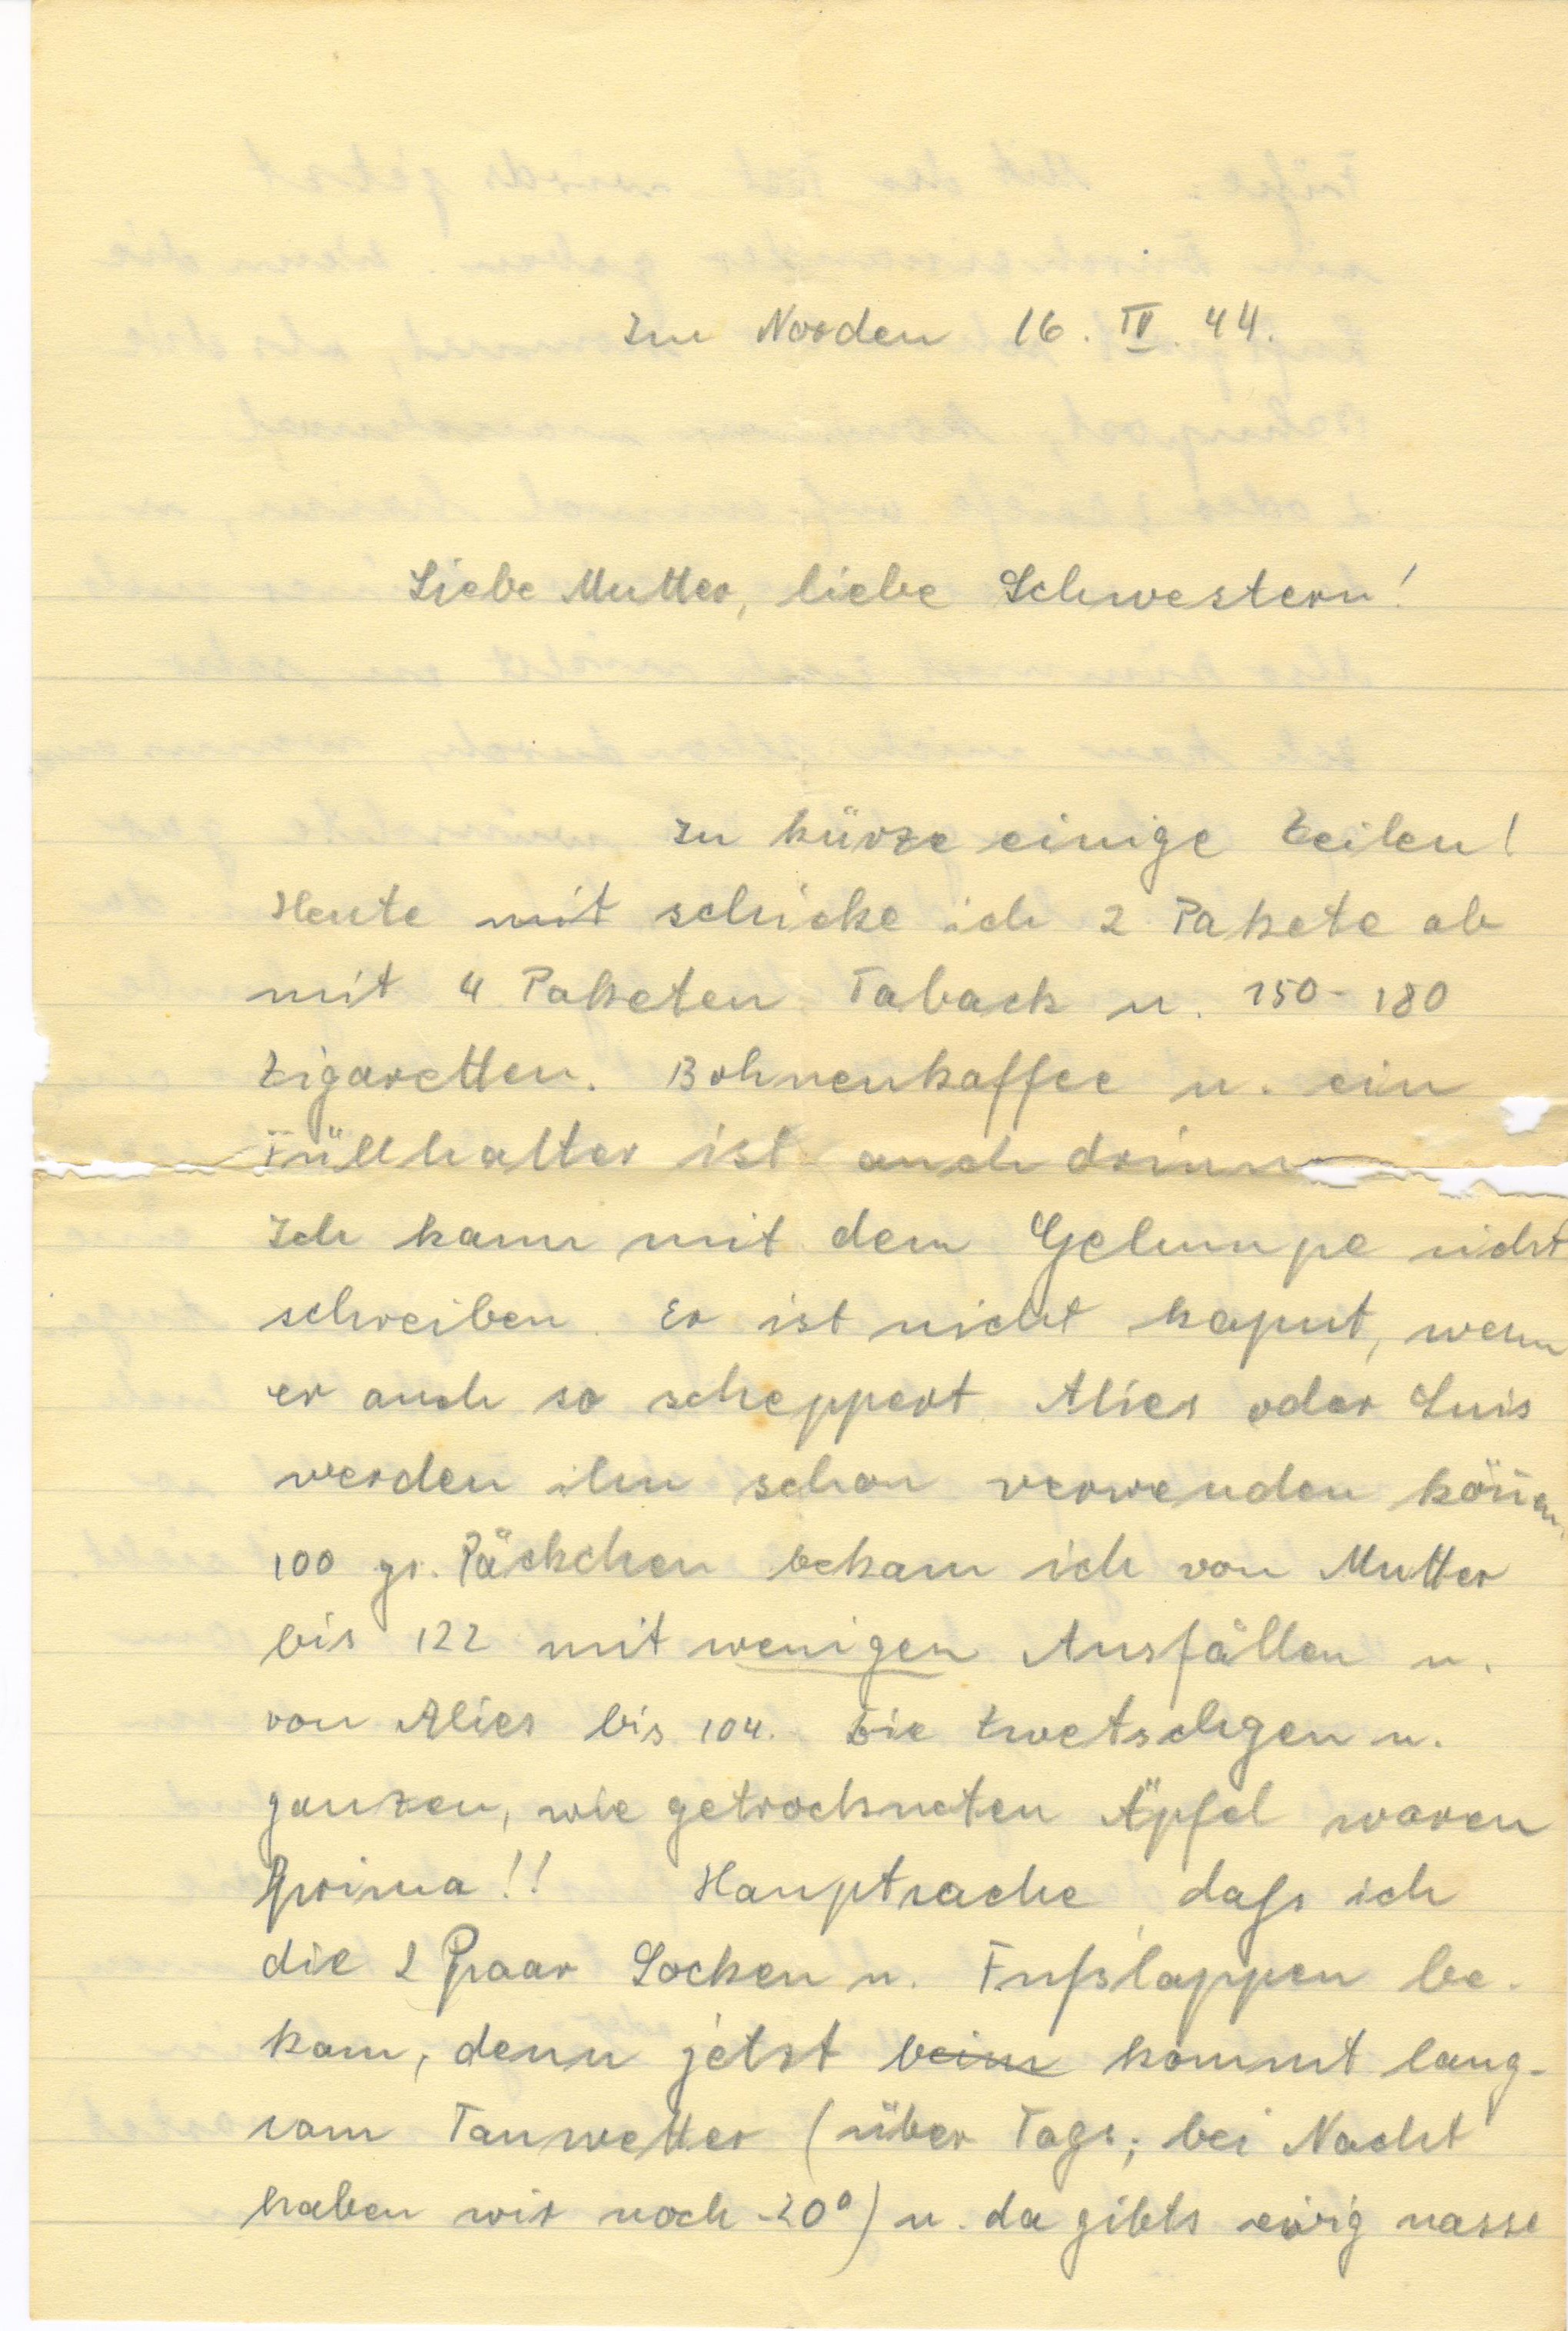 Im Norden 16. IV. 44.
Liebe Mutter, liebe Schwestern!
In kürze einige Zeilen!
Heute mit schicke ich 2 Pakete ab
mit 4 Paketen Taback u. 150-180
Zigaretten. Bohnenkaffee u. ein
Füllhalter ist auch drinn
Ich kann mit dem Gelumpe nicht
schreiben. Er ist nicht kaput, wenn
er auch so scheppert. Alies oder Luis
werden ihn schon verwenden können.
100 gr. Päckchen bekam ich von Mutter
bis 122 mit wenigen Ausfällen u.
von Alies bis 104. Die Zwetschgen u.
ganzen, wie getrockneten Äpfel waren
prima!! Hauptsache, daß ich
die 2 Paar Socken u. Fußlappen be-
kam, denn jetzt beim kommt lang-
sam Tauwetter (über Tags; bei Nacht
haben wir noch -20°) u. da gibts ewig nasse